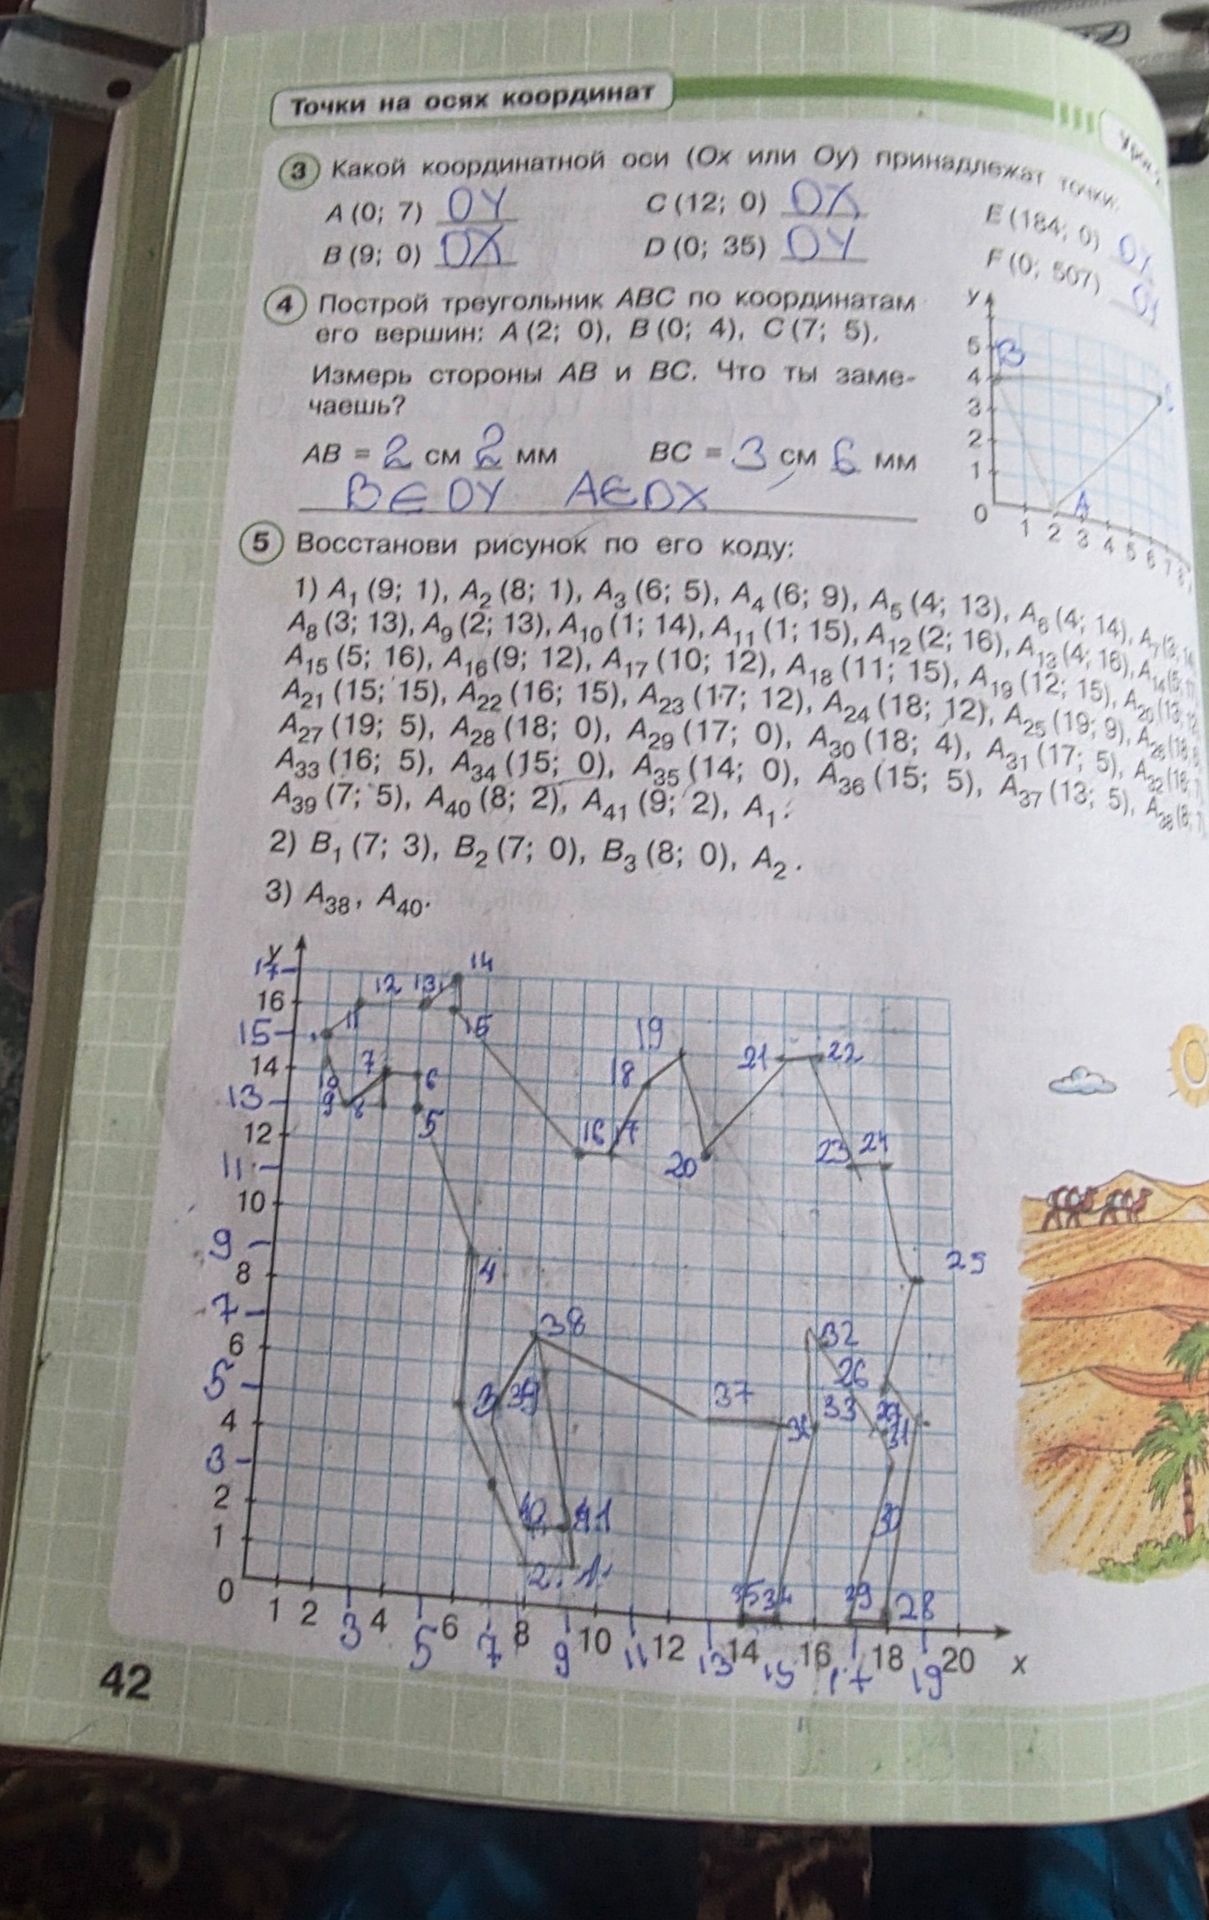 Точки на осях координат
3 Какой координатной оси (Ox или Oy) принадлежат точки:
A (0; 7) OY C (12; 0) OX E (184; 0)
B (9; 0) OX D (0; 35) OY F (0; 507)
4 Построй треугольник ABC по координатам
его вершин: A (2; 0), B (0; 4), C (7; 5).
Измерь стороны AB и BC. Что ты заме-
чаешь?
AB = 2 см 2 мм BC = 3 см 6 мм
B ∈ OY A ∈ OX
y
5 B
4
3
2
1
0 1 2 3 4 5 6 7 8
A
5 Восстанови рисунок по его коду:
1) A₁ (9; 1), A₂ (8; 1), A₃ (6; 5), A₄ (6; 9), A₅ (4; 13), A₆ (4; 14), A₇ (3; 14
A₈ (3; 13), A₉ (2; 13), A₁₀ (1; 14), A₁₁ (1; 15), A₁₂ (2; 16), A₁₃ (4; 16), A₁₄ (5; 17)
A₁₅ (5; 16), A₁₆ (9; 12), A₁₇ (10; 12), A₁₈ (11; 15), A₁₉ (12; 15), A₂₀ (13; 12)
A₂₁ (15; 15), A₂₂ (16; 15), A₂₃ (17; 12), A₂₄ (18; 12), A₂₅ (19; 9), A₂₆ (18; 6)
A₂₇ (19; 5), A₂₈ (18; 0), A₂₉ (17; 0), A₃₀ (18; 4), A₃₁ (17; 5), A₃₂ (16; 7)
A₃₃ (16; 5), A₃₄ (15; 0), A₃₅ (14; 0), A₃₆ (15; 5), A₃₇ (13; 5), A₃₈ (8; 7)
A₃₉ (7; 5), A₄₀ (8; 2), A₄₁ (9; 2), A₁.
2) B₁ (7; 3), B₂ (7; 0), B₃ (8; 0), A₂.
3) A₃₈, A₄₀.
y
17 14
16 12 13
15 11 15 19 21 22
14 10 7 6 18
13 9 8 5
12 16 17
11 20 23 24
10
9 4 25
8
7 38 32
6 26
5 3 39 37 36 33 27
4 31
3
2 40 41 30
1 2 1
0 35 34 29 28
1 2 3 4 5 6 7 8 9 10 11 12 13 14 15 16 17 18 19 20 x
42